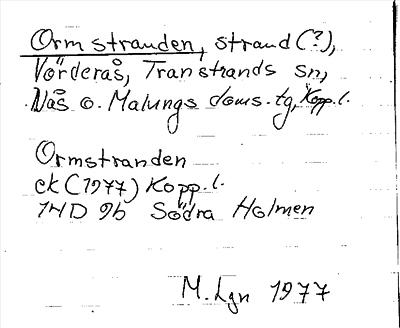 Ormstranden, strand(?),
Vörderås, Transtrands sn,
Nås o. Malungs doms. tg, Kopp. l.
Ormstranden
ek (1977) Kopp. l.
1HD 9b Södra Holmen
M. Lgn 1977